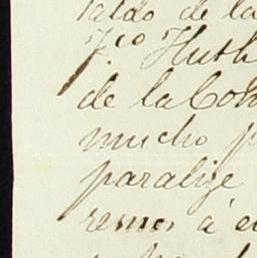 saldo de la
F.co Huth
de la Con
mucho p
paralize
remos á e